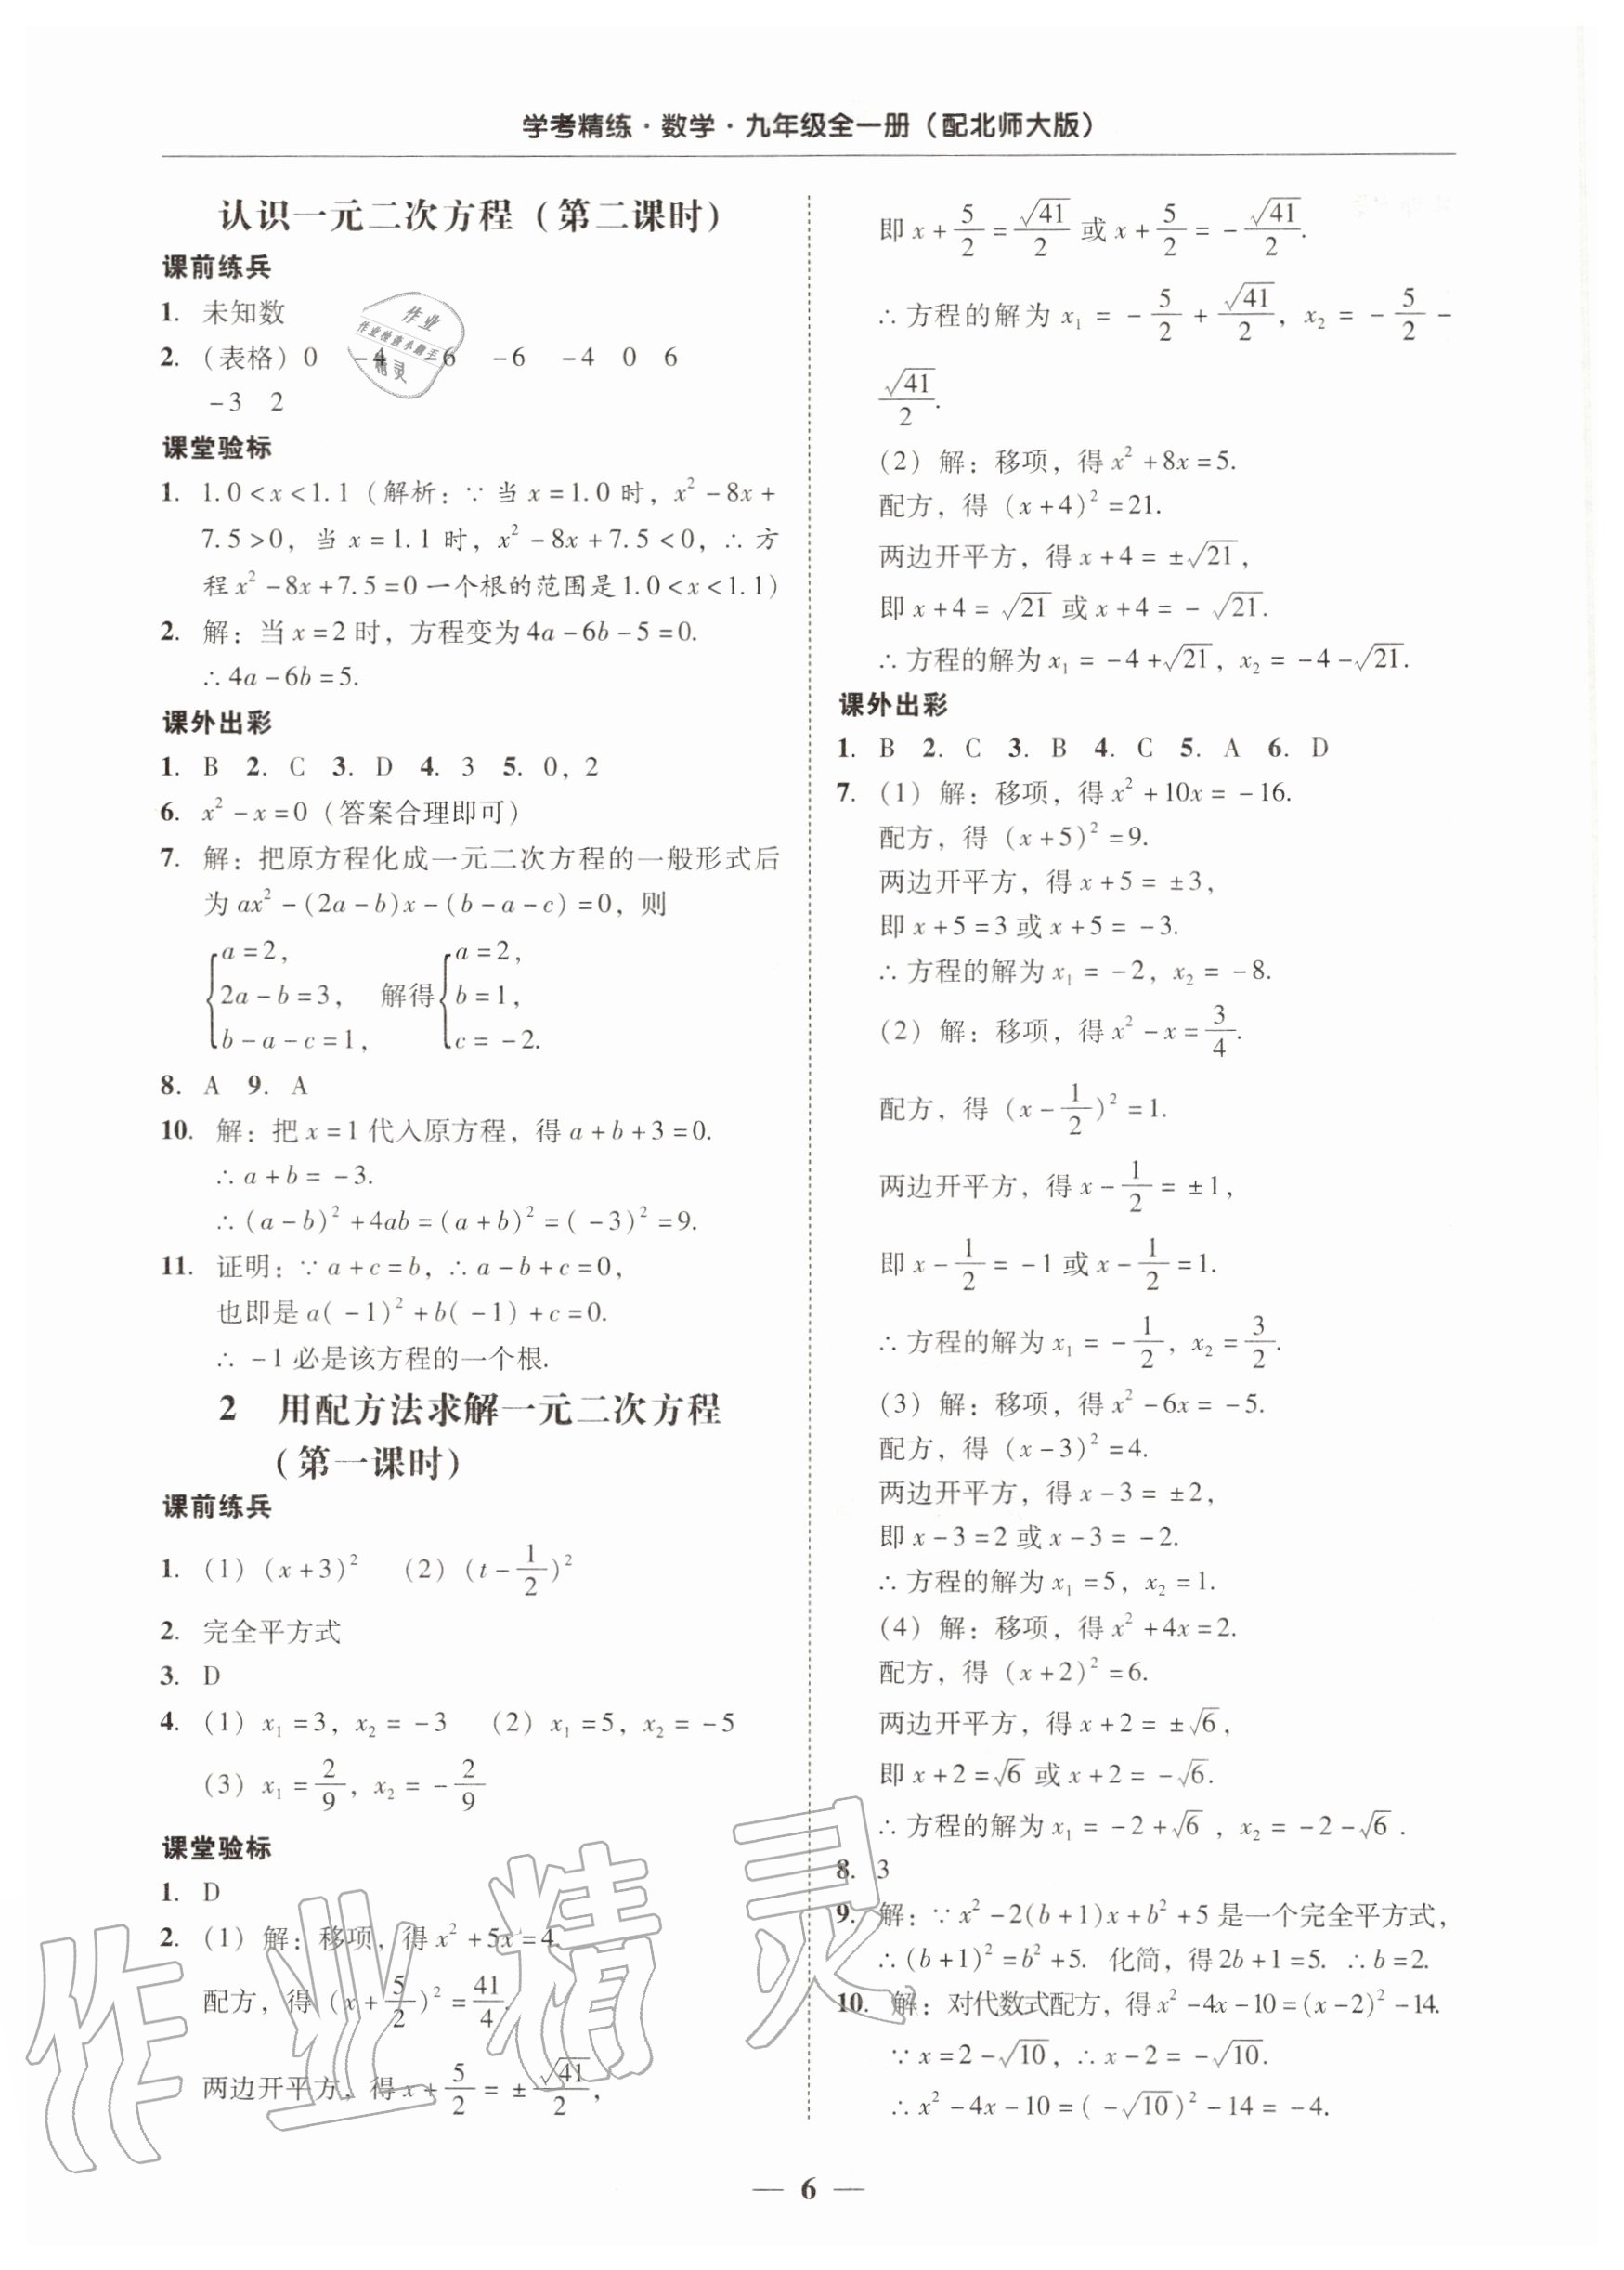 学考精练·数学·九年级全一册（配北师大版）
认识一元二次方程（第二课时）
课前练兵
1. 未知数
2. （表格）0 -4 -6 -6 -4 0 6
-3 2
课堂验标
1. 1.0<x<1.1（解析：∵当x=1.0时，x²-8x+
7.5>0，当x=1.1时，x²-8x+7.5<0，∴方
程x²-8x+7.5=0一个根的范围是1.0<x<1.1）
2. 解：当x=2时，方程变为4a-6b-5=0.
∴4a-6b=5.
课外出彩
1. B 2. C 3. D 4. 3 5. 0，2
6. x²-x=0（答案合理即可）
7. 解：把原方程化成一元二次方程的一般形式后
为ax²-(2a-b)x-(b-a-c)=0，则
{a=2, 2a-b=3, b-a-c=1, 解得{a=2, b=1, c=-2.
8. A 9. A
10. 解：把x=1代入原方程，得a+b+3=0.
∴a+b=-3.
∴(a-b)²+4ab=(a+b)²=(-3)²=9.
11. 证明：∵a+c=b，∴a-b+c=0，
也即是a(-1)²+b(-1)+c=0.
∴-1必是该方程的一个根.
2 用配方法求解一元二次方程
（第一课时）
课前练兵
1. （1）(x+3)² （2）(t-1/2)²
2. 完全平方式
3. D
4. （1）x₁=3，x₂=-3 （2）x₁=5，x₂=-5
（3）x₁=2/9，x₂=-2/9
课堂验标
1. D
2. （1）解：移项，得x²+5x=4.
配方，得(x+5/2)²=41/4.
两边开平方，得x+5/2=±√41/2，
即x+5/2=√41/2或x+5/2=-√41/2.
∴方程的解为x₁=-5/2+√41/2，x₂=-5/2-
√41/2.
（2）解：移项，得x²+8x=5.
配方，得(x+4)²=21.
两边开平方，得x+4=±√21，
即x+4=√21或x+4=-√21.
∴方程的解为x₁=-4+√21，x₂=-4-√21.
课外出彩
1. B 2. C 3. B 4. C 5. A 6. D
7. （1）解：移项，得x²+10x=-16.
配方，得(x+5)²=9.
两边开平方，得x+5=±3，
即x+5=3或x+5=-3.
∴方程的解为x₁=-2，x₂=-8.
（2）解：移项，得x²-x=3/4.
配方，得(x-1/2)²=1.
两边开平方，得x-1/2=±1，
即x-1/2=-1或x-1/2=1.
∴方程的解为x₁=-1/2，x₂=3/2.
（3）解：移项，得x²-6x=-5.
配方，得(x-3)²=4.
两边开平方，得x-3=±2，
即x-3=2或x-3=-2.
∴方程的解为x₁=5，x₂=1.
（4）解：移项，得x²+4x=2.
配方，得(x+2)²=6.
两边开平方，得x+2=±√6，
即x+2=√6或x+2=-√6.
∴方程的解为x₁=-2+√6，x₂=-2-√6.
8. 3
9. 解：∵x²-2(b+1)x+b²+5是一个完全平方式，
∴(b+1)²=b²+5. 化简，得2b+1=5. ∴b=2.
10. 解：对代数式配方，得x²-4x-10=(x-2)²-14.
∵x=2-√10，∴x-2=-√10.
∴x²-4x-10=(-√10)²-14=-4.
— 6 —
作业
作业检查小助手
精灵
作业精灵